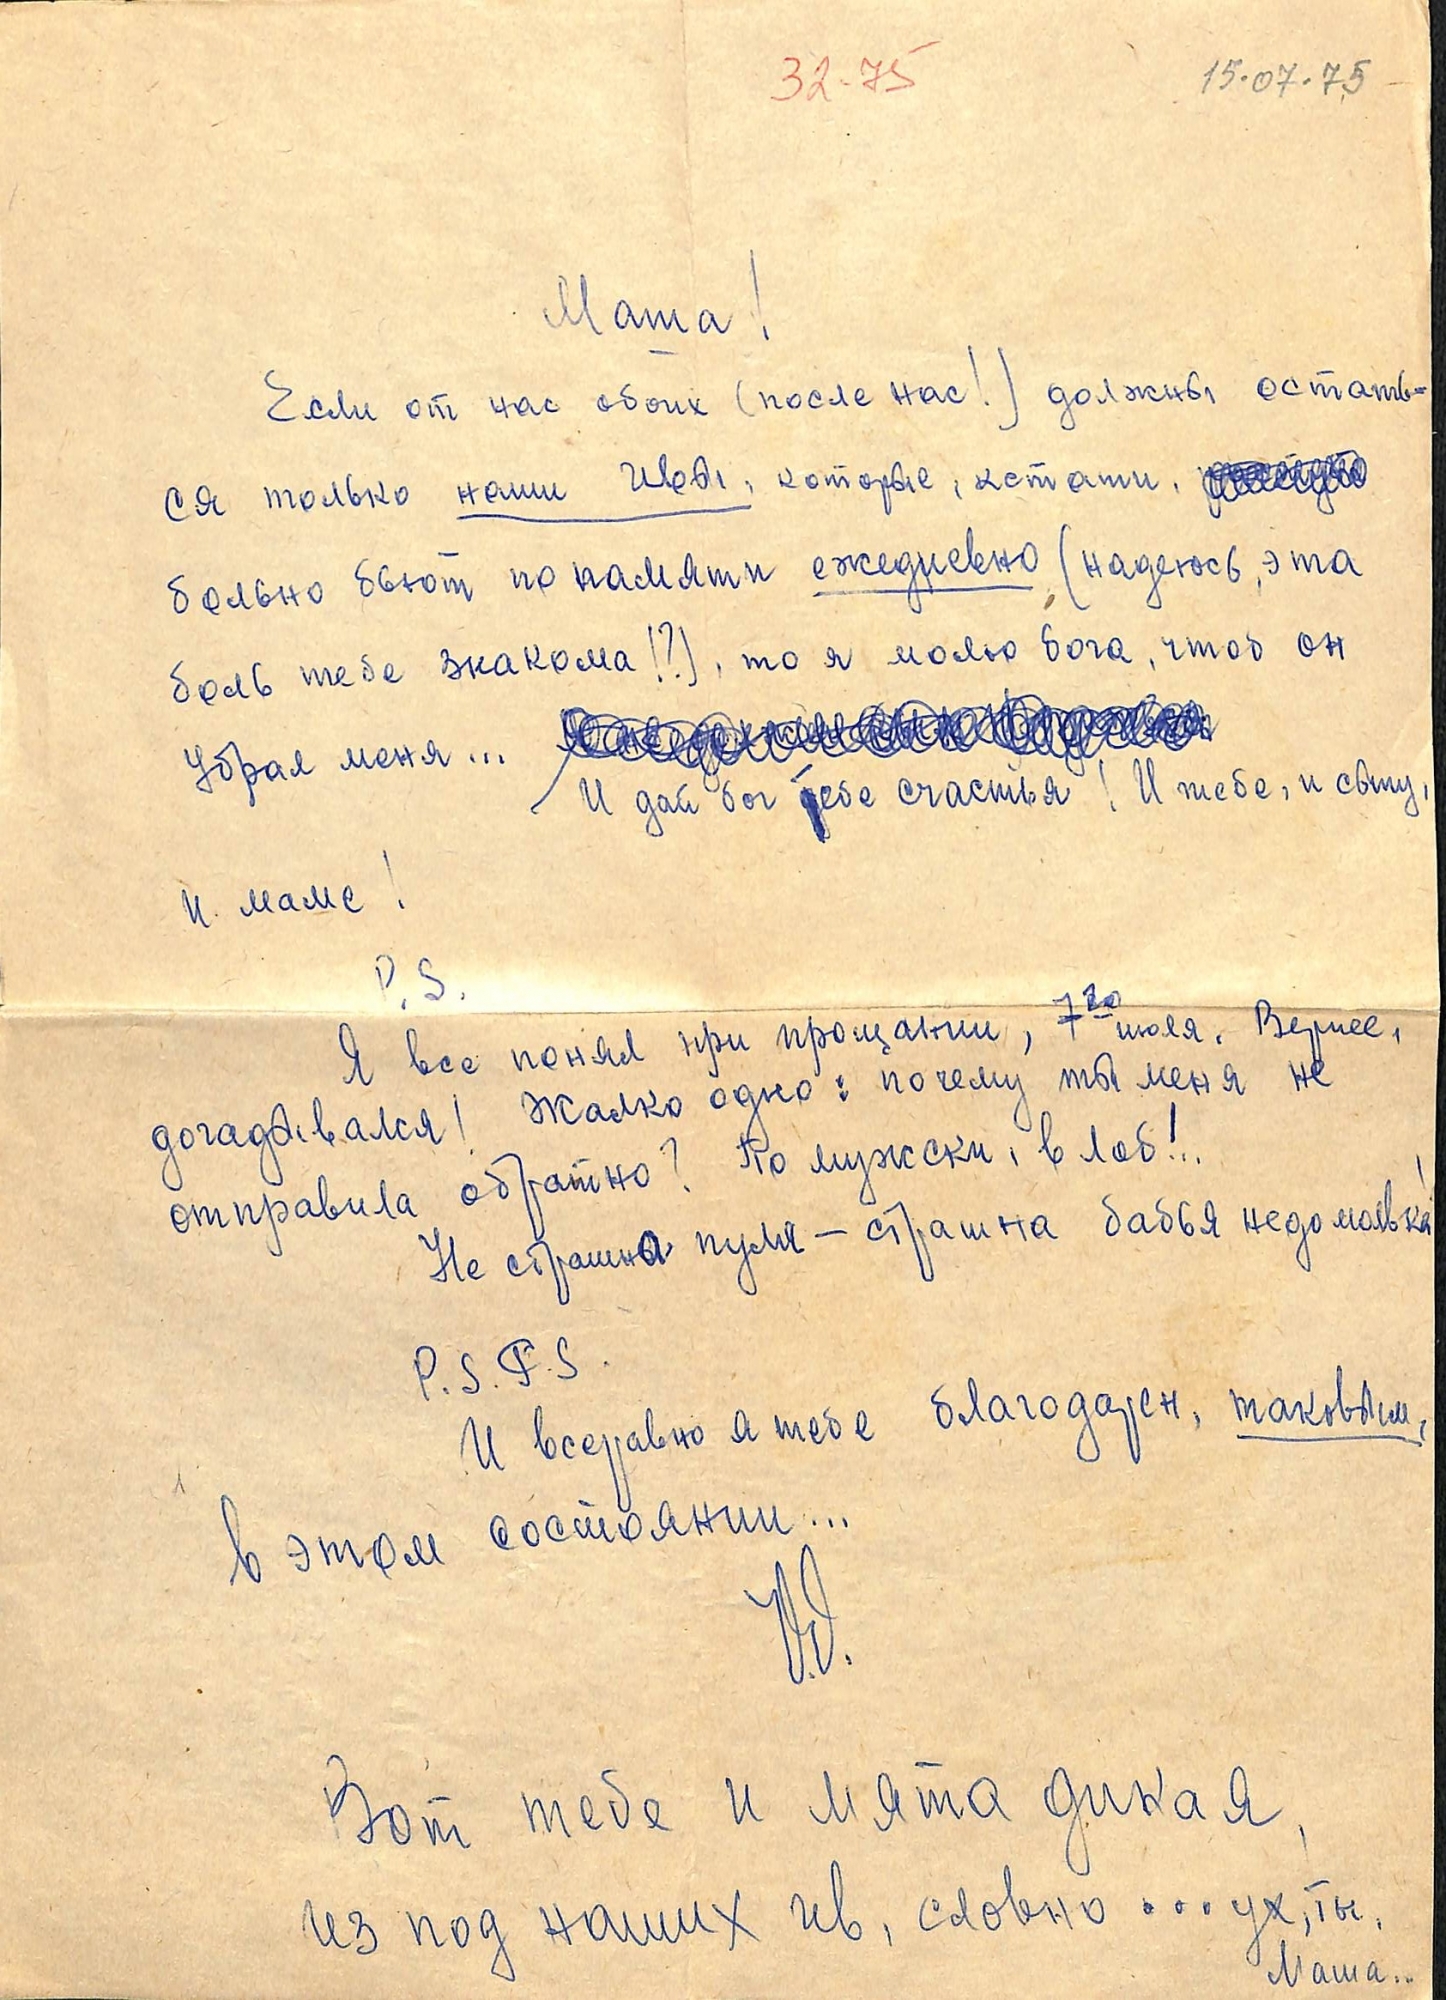 32-75
15.07.75
Маша!
Если от нас обоих (после нас!) должны остать-
ся только наши Ивы, которые, кстати,
больно бьют по памяти ежедневно (надеюсь, эта
боль тебе знакома!?), то я молю бога, чтоб он
убрал меня...
И дай бог тебе счастья! И тебе, и сыну,
и маме!
P.S.
Я все понял при прощании, 7го июля. Вернее,
догадывался! Жалко одно: почему ты меня не
отправила обратно? По мужски, в лоб!..
Не страшна пуля — страшна бабья недомолвка!
P.S.P.S.
И всеравно я тебе благодарен, таковым,
в этом состоянии...
Вот тебе и мята дикая,
из под наших ив, словно ...ух, ты,
Маша..